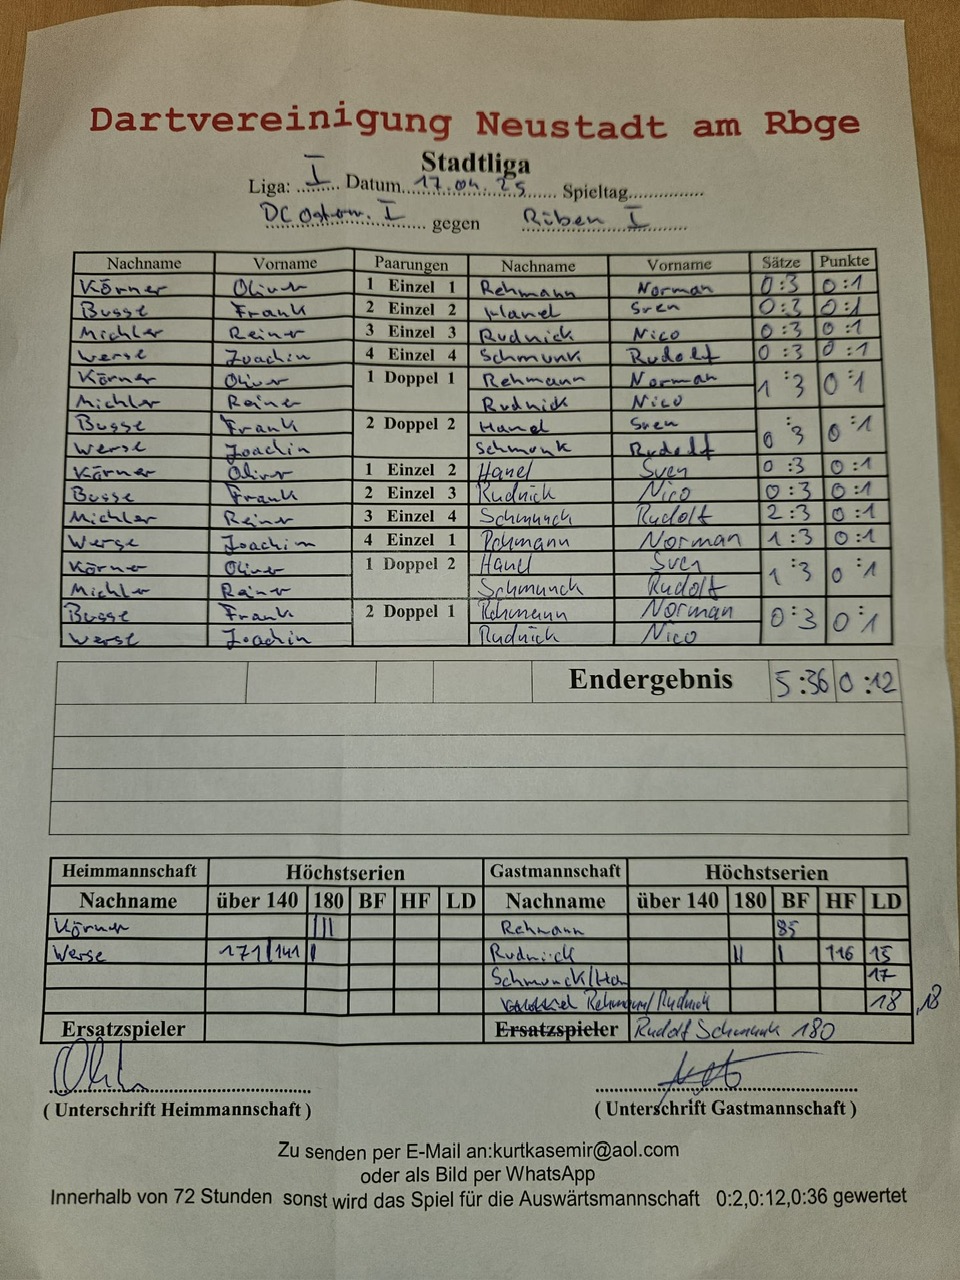 Dartvereinigung Neustadt am Rbge
Stadtliga
Liga: I Datum 17.04.25 Spieltag
DC Osterw. I gegen Rüben I
Nachname Vorname Paarungen Nachname Vorname Sätze Punkte
Körner Oliver 1 Einzel 1 Rehmann Norman 0:3 0:1
Busse Frank 2 Einzel 2 Hanel Sven 0:3 0:1
Michler Reiner 3 Einzel 3 Rudnick Nico 0:3 0:1
Werse Joachim 4 Einzel 4 Schmunk Rudolf 0:3 0:1
Körner Oliver 1 Doppel 1 Rehmann Norman 1:3 0:1
Michler Reiner Rudnick Nico
Busse Frank 2 Doppel 2 Hanel Sven 0:3 0:1
Werse Joachim Schmunk Rudolf
Körner Oliver 1 Einzel 2 Hanel Sven 0:3 0:1
Busse Frank 2 Einzel 3 Rudnick Nico 0:3 0:1
Michler Reiner 3 Einzel 4 Schmunck Rudolf 2:3 0:1
Werse Joachim 4 Einzel 1 Rehmann Norman 1:3 0:1
Körner Oliver 1 Doppel 2 Hanel Sven 1:3 0:1
Michler Reiner Schmunck Rudolf
Busse Frank 2 Doppel 1 Rehmann Norman 0:3 0:1
Werse Joachim Rudnick Nico
Endergebnis 5:36 0:12
Heimmannschaft Höchstserien Gastmannschaft Höchstserien
Nachname über 140 180 BF HF LD Nachname über 140 180 BF HF LD
Körner ||| Rehmann 85
Werse 171/141 | Rudnick || | 116 15
Schmunck/Han 17
Rehmann/Rudnick 18,18
Ersatzspieler Ersatzspieler Rudolf Schmunk 180
( Unterschrift Heimmannschaft ) ( Unterschrift Gastmannschaft )
Zu senden per E-Mail an:kurtkasemir@aol.com
oder als Bild per WhatsApp
Innerhalb von 72 Stunden sonst wird das Spiel für die Auswärtsmannschaft 0:2,0:12,0:36 gewertet